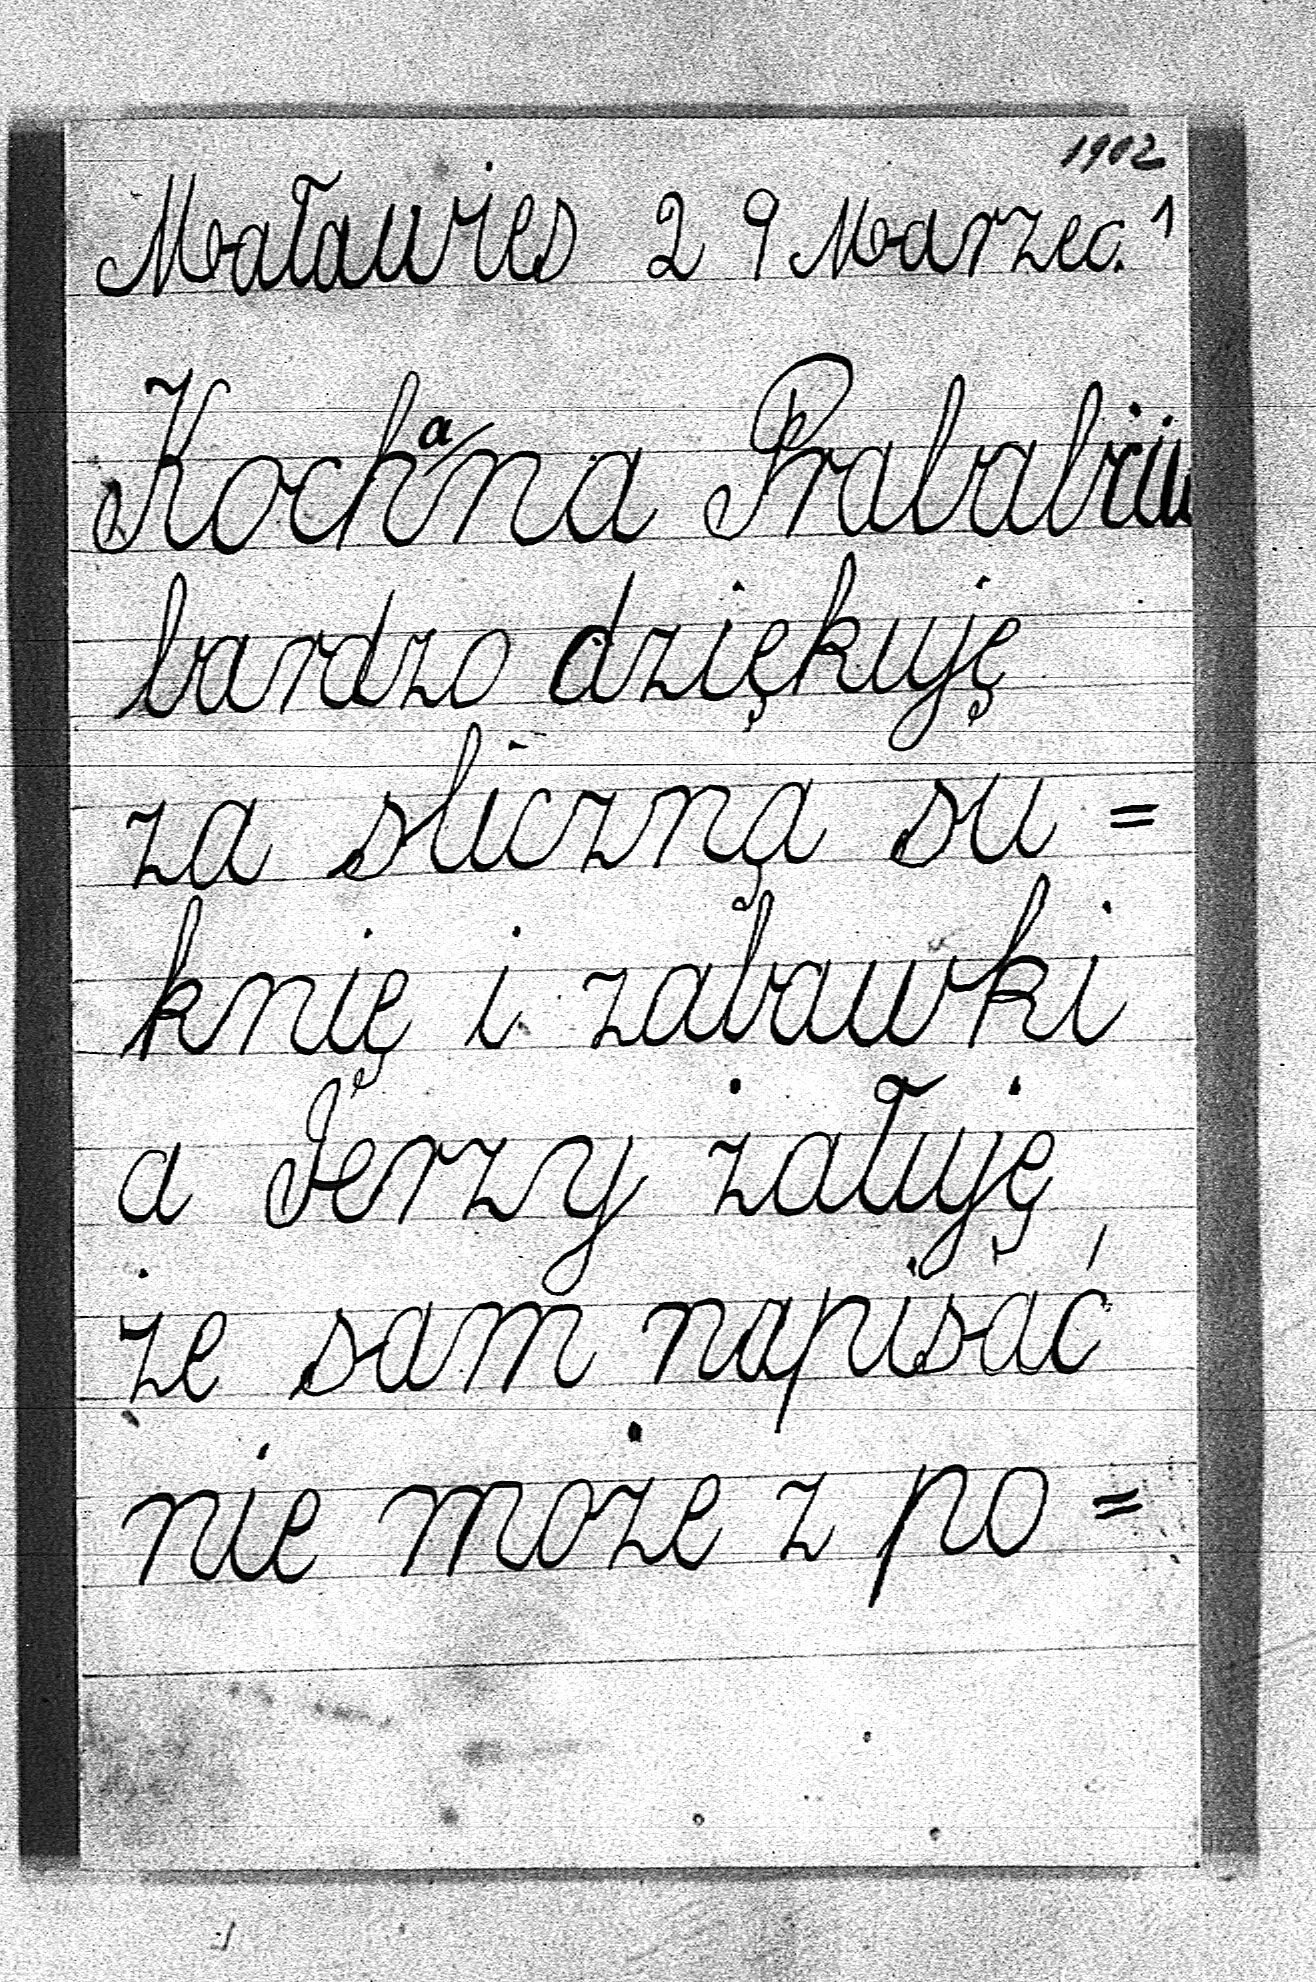 1902
Maławies 29 Marzec. 1
Kochana Prababciu
bardzo dziękuję
za sliczną su=
knię i zabawki
a Jerzy żałuję
że sam napisać
nie może z po=